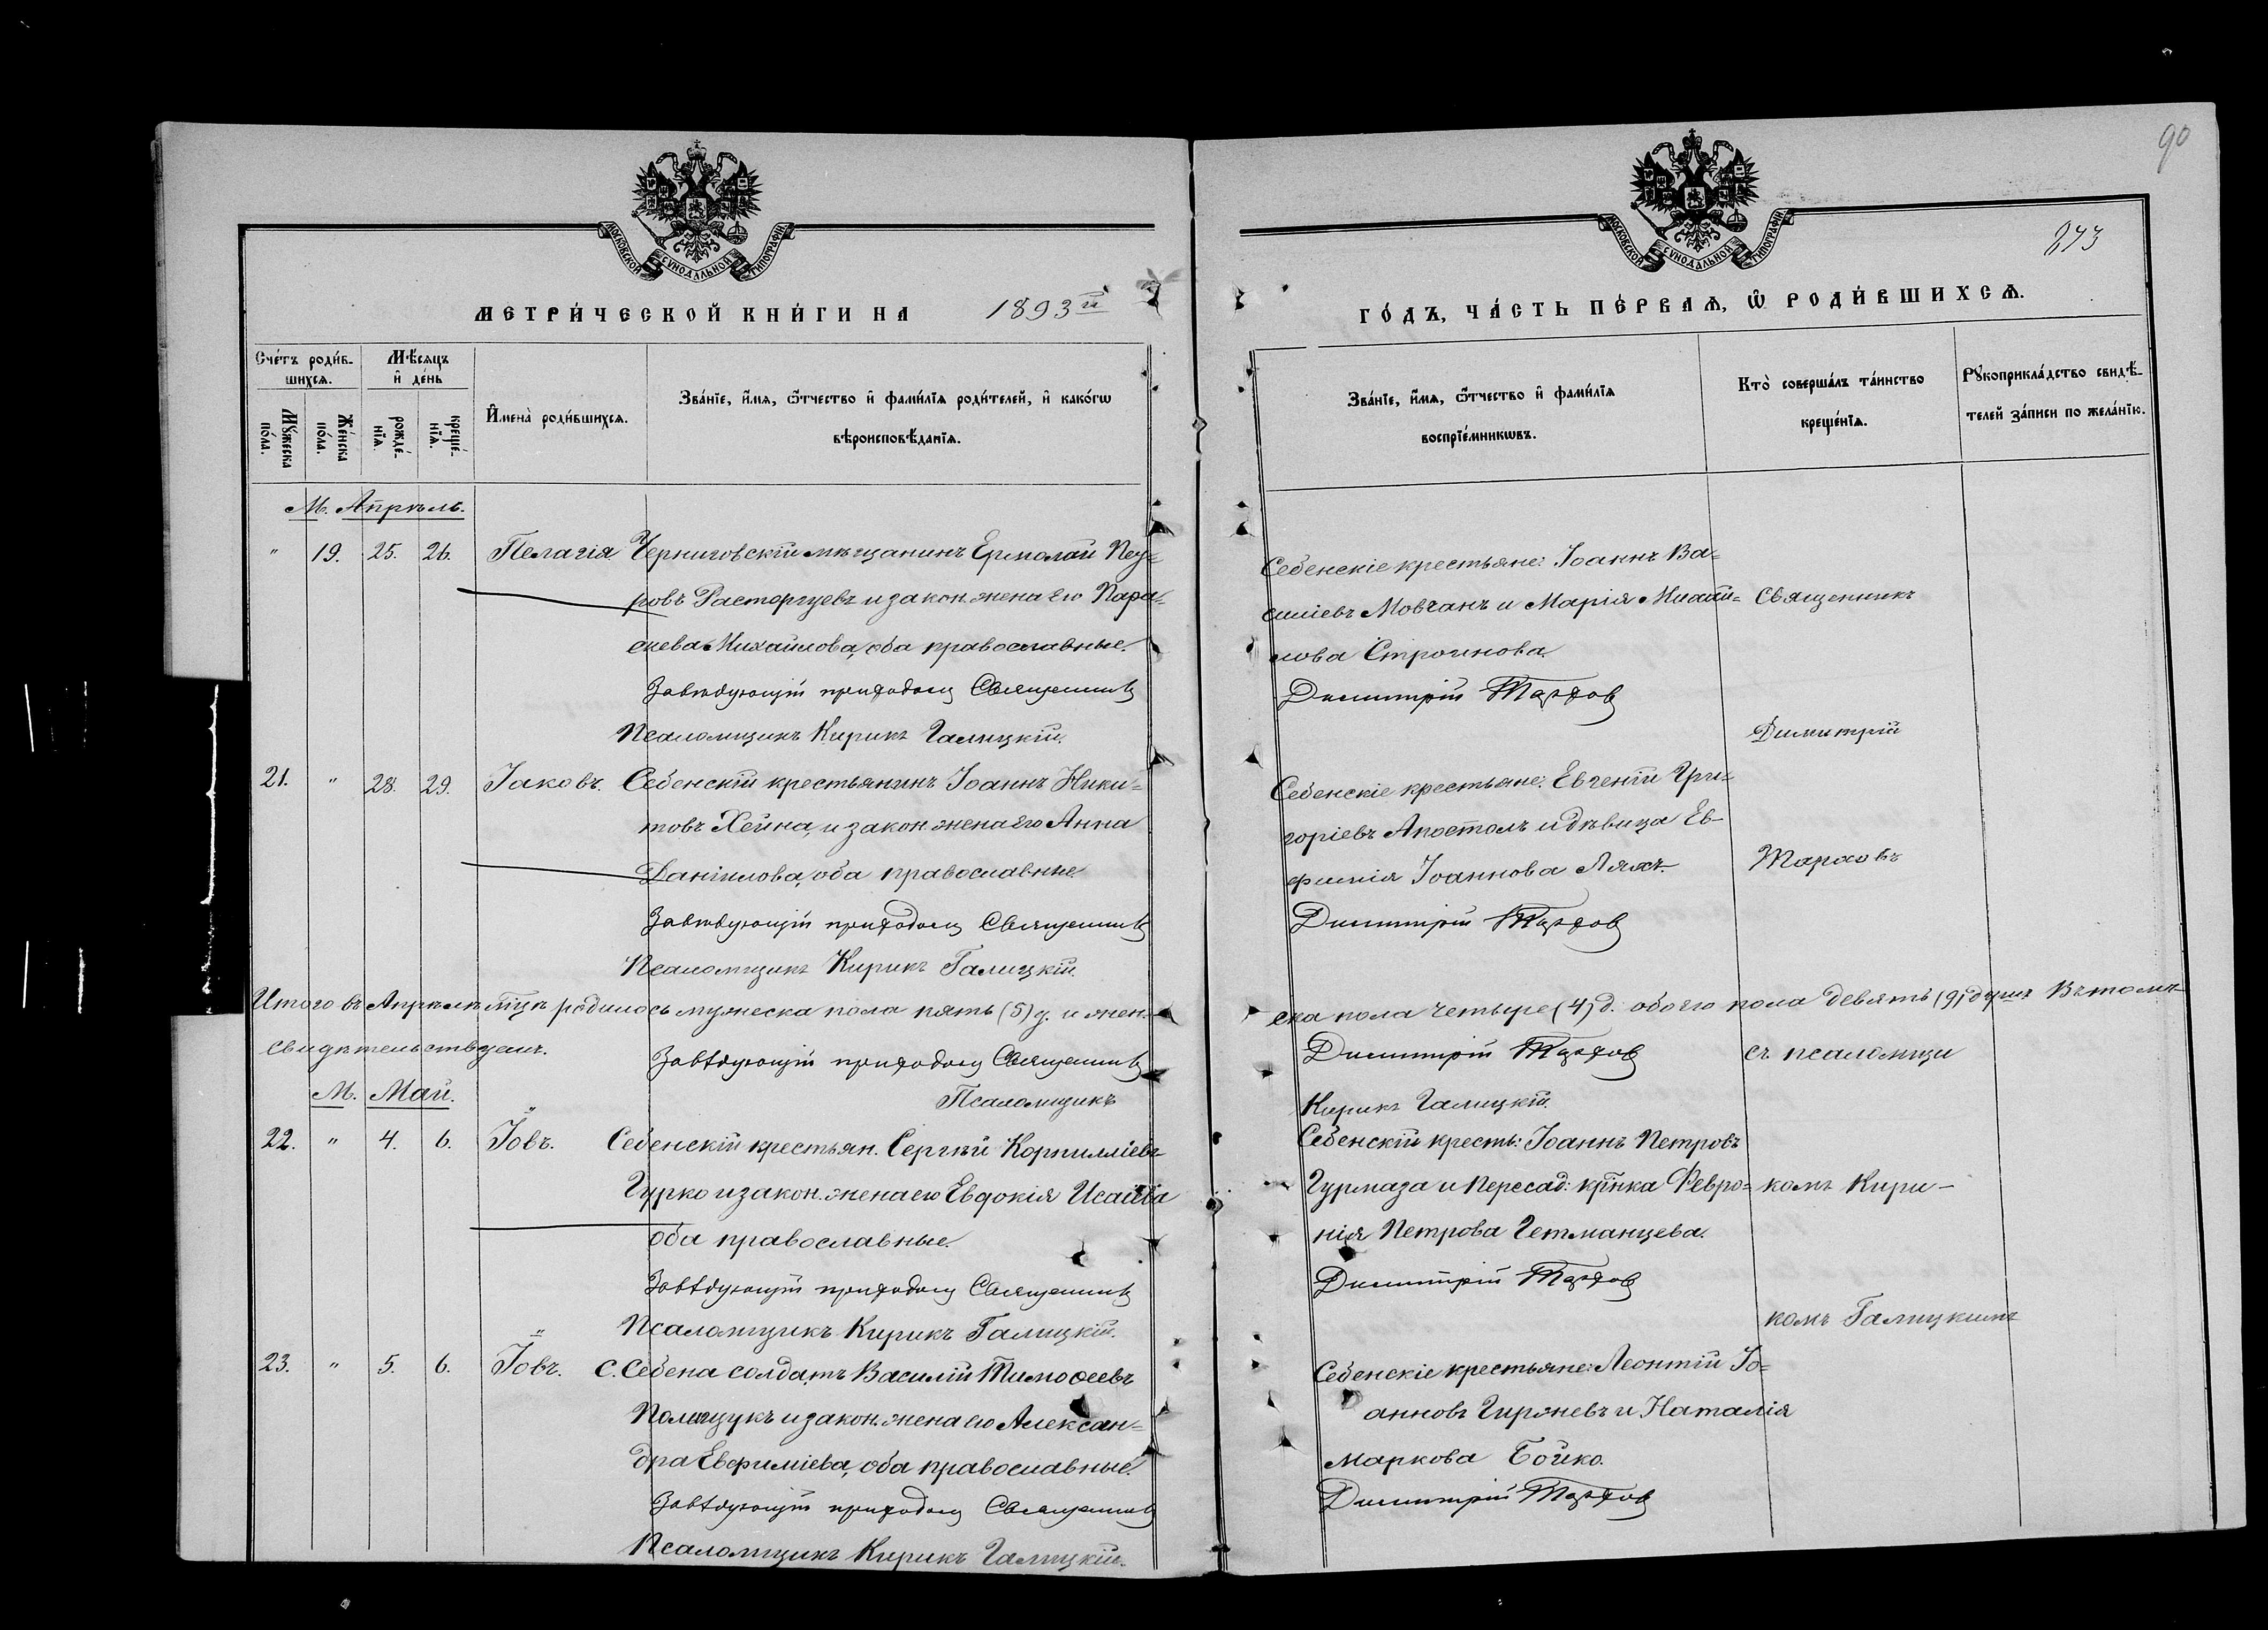 90
873
МОСКОВСКОЙ СѴНОДАЛЬНОЙ ТИПОГРАФІИ
МОСКОВСКОЙ СѴНОДАЛЬНОЙ ТИПОГРАФІИ
МЕТРИ́ЧЕСКОЙ КНИ́ГИ НА 1893й
ГО́ДЪ, ЧА́СТЬ ПЕ́РВАЯ, Ѡ РОДИ́ВШИХСЯ.
Сче́тъ роди́в-
шихся.
Мꙋ́жеска по́ла.
Же́нска по́ла.
Мѣ́сяцъ
и҆ де́нь
рожде́-нїя.
креще́-нїя.
И҆мена̀ роди́вшихся.
Зва́нїе, и҆́мя, ѻ҆́тчество и҆ фами́лїя роди́телей, и҆ како́гѡ
вѣроисповѣ́данїя.
Зва́нїе, и҆́мя, ѻ҆́тчество и҆ фами́лїя
воспрїе́мникѡвъ.
Кто̀ соверша́лъ та́инство
креще́нїя.
Рꙋкоприкла́дство свидѣ́-
телей за́писи по жела́нїю.
М. Апрѣль.
" 19. 25. 26. Пелагія Черниговскій мѣщанинъ Ермолай
ровъ Расторгуевъ и закон. жена его Пара-
скева Михайлова, оба православные.
Завѣдующій приходомъ Священникъ
Псаломщикъ Кирикъ Галицкій.
Себенскіе крестьяне: Іоаннъ Ва-
силіевъ Мовчанъ и Марія
лова Строинова.
Димитрій Тарховъ
Священникъ
Димитрій
Тарховъ
21. " 28. 29. Іаковъ. Себенскій крестьянинъ Іоаннъ Ники-
товъ Хейна, и закон. жена его Анна
Даніилова, оба православные
Завѣдующій приходомъ Священникъ
Псаломщикъ Кирикъ Галицкій.
Себенскіе крестьяне: Евгеній Гри-
горіевъ Апостолъ и дѣвица Ев-
фимія Іоаннова Ляхъ.
Димитрій Тарховъ
Итого въ Апрѣлѣ мцѣ родилось мужеска пола пять (5) д. и жен-
ска пола четыре (4) д. обоего пола девять (9) душъ Въ томъ
свидѣтельствуемъ.
Завѣдующій приходомъ Священникъ
Димитрій Тарховъ
Псаломщикъ
Кирикъ Галицкій.
съ псаломщи
М. Май.
22. " 4. 6. Іовъ. Себенскій крестьян. Сергѣй Корнилліевъ
Гурко и закон. жена его Евдокія
оба православные.
Завѣдующій приходомъ Священникъ
Псаломщикъ Кирикъ Галицкій.
Себенскій кресть: Іоаннъ Петровъ
Гурмаза и Пересад: крнка Февро-
нія Петрова Гетманцева.
Димитрій Тарховъ
комъ Кири-
комъ Галицкимъ
23. " 5. 6. Іовъ. С. Себена солдатъ Василій Тимоѳеевъ
Полищукъ и закон. жена его Алексан-
дра Евфиміева, оба православные.
Завѣдующій приходомъ Священникъ
Псаломщикъ Кирикъ Галицкій.
Себенскіе крестьяне: Леонтій Іо-
анновъ Гиржевъ и Наталія
Маркова Бойко.
Димитрій Тарховъ